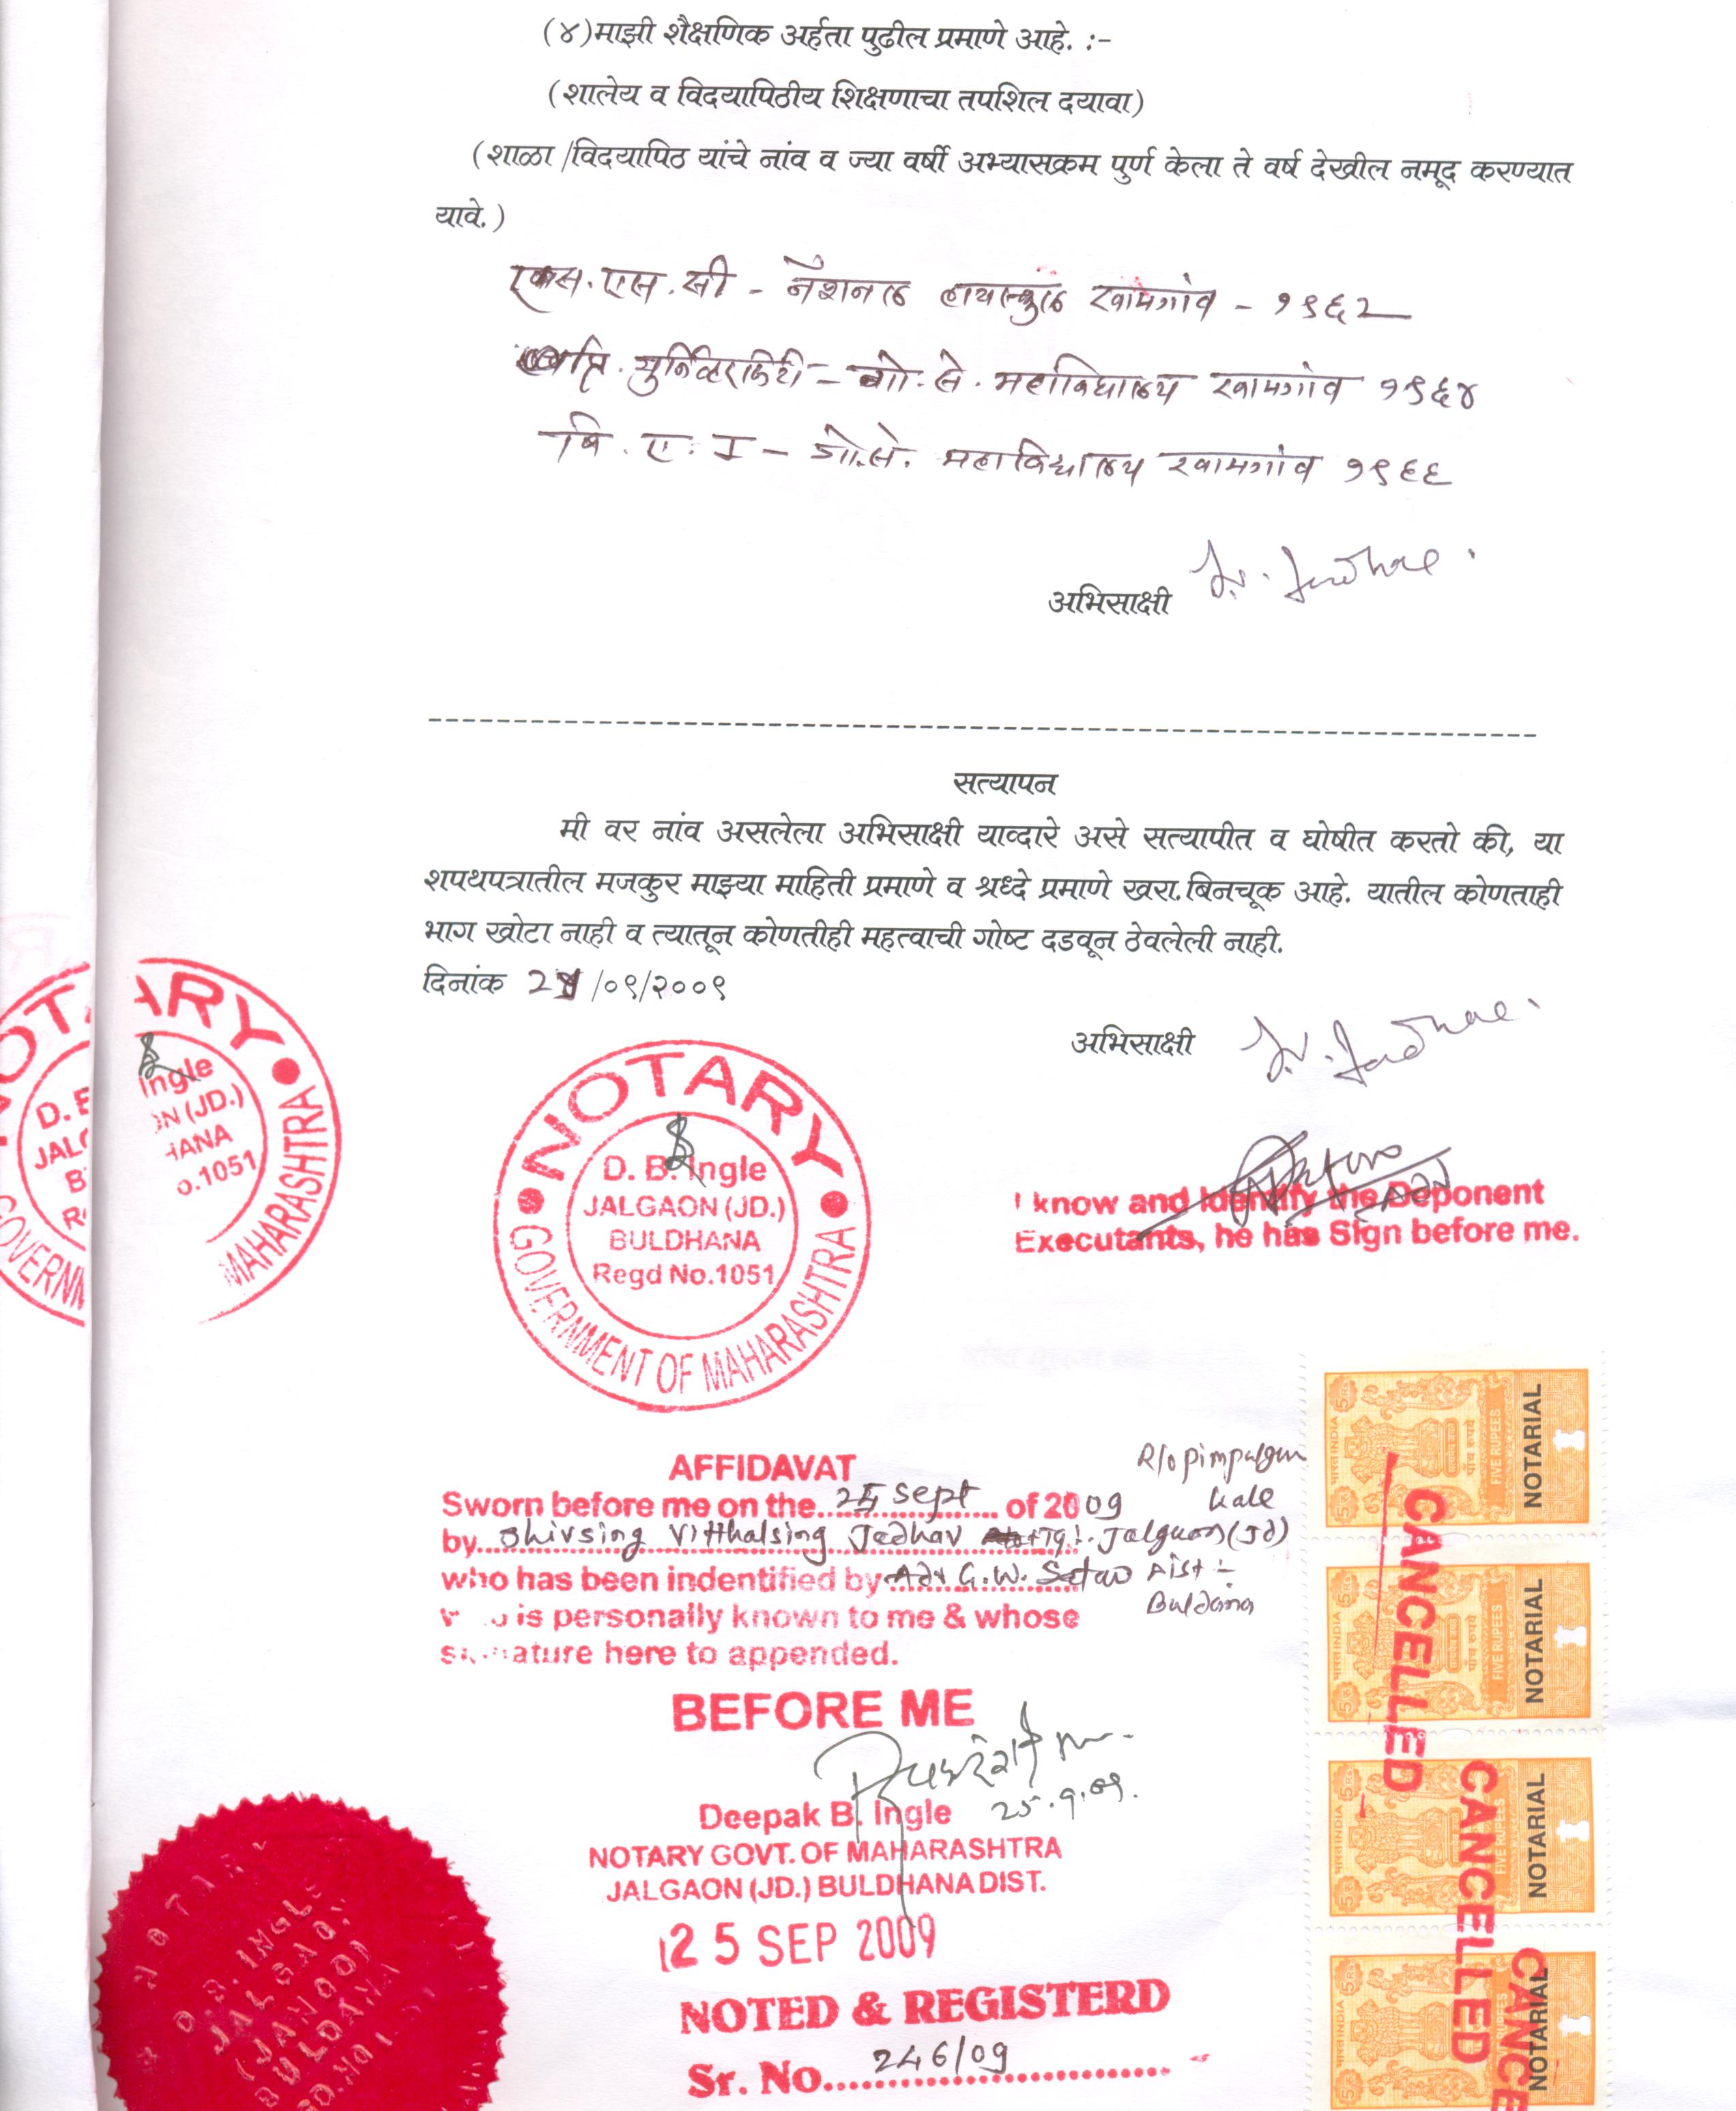 (४)माझी शैक्षणिक अर्हता पुढील प्रमाणे आहे. :-
(शालेय व विदयापिठीय शिक्षणाचा तपशिल दयावा)
(शाळा /विदयापिठ यांचे नांव व ज्या वर्षी अभ्यासक्रम पुर्ण केला ते वर्ष देखील नमूद करण्यात
यावे.)
एस.एस.सी - नॅशनल हायस्कुल खामगांव - १९६२
प्रि. युनिव्हरसिटी - गो.से. महाविद्यालय खामगांव १९६४
बि.ए. I - गो.से. महाविद्यालय खामगांव १९६६
अभिसाक्षी
सत्यापन
मी वर नांव असलेला अभिसाक्षी याव्दारे असे सत्यापीत व घोषीत करतो की, या
शपथपत्रातील मजकुर माझ्या माहिती प्रमाणे व श्रध्दे प्रमाणे खरा.बिनचूक आहे. यातील कोणताही
भाग खोटा नाही व त्यातून कोणतीही महत्वाची गोष्ट दडवून ठेवलेली नाही.
दिनांक /०९/२००९
अभिसाक्षी
NOTARY
D. B. Ingle
JALGAON (JD.)
BULDHANA
Regd No.1051
GOVERNMENT OF MAHARASHTRA
ARY
Ingle
(JD.)
.1051
MAHARASHTRA
I know and Identify the Deponent
Executants, he has Sign before me.
AFFIDAVAT
R/o pimpalgaon
kale
Sworn before me on the 25 sept of 2009
by Shivsing Vitthalsing Jadhav Tq. Jalgaon (Jd)
who has been indentified by Adv G.W. Dist -
Buldana
is personally known to me & whose
signature here to appended.
BEFORE ME
25.9.09.
Deepak B. Ingle
NOTARY GOVT. OF MAHARASHTRA
JALGAON (JD.) BULDHANA DIST.
25 SEP 2009
NOTED & REGISTERD
Sr. No. 246/09
NOTARY
D. B. INGLE
JALGAON
(JAMOD)
BULDANA
भारत INDIA
FIVE RUPEES
पाँच रुपये
NOTARIAL
NOTARIAL
NOTARIAL
NOTARIAL
CANCELLED
CANCELLED
CANCE